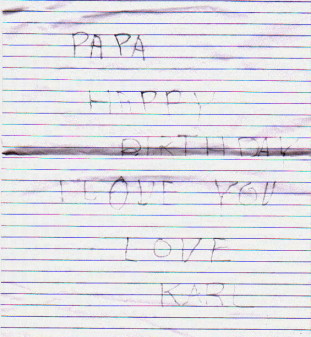 PAPA
HAPPY
BIRTHDAY
I LOVE YOU
LOVE
KARL